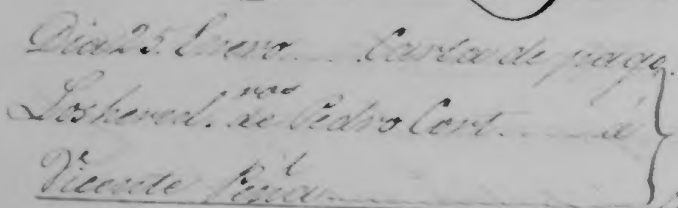 Dia 25. Enero Carta de pago.
Los hered.ros de Pedro Cort. á
Vicente